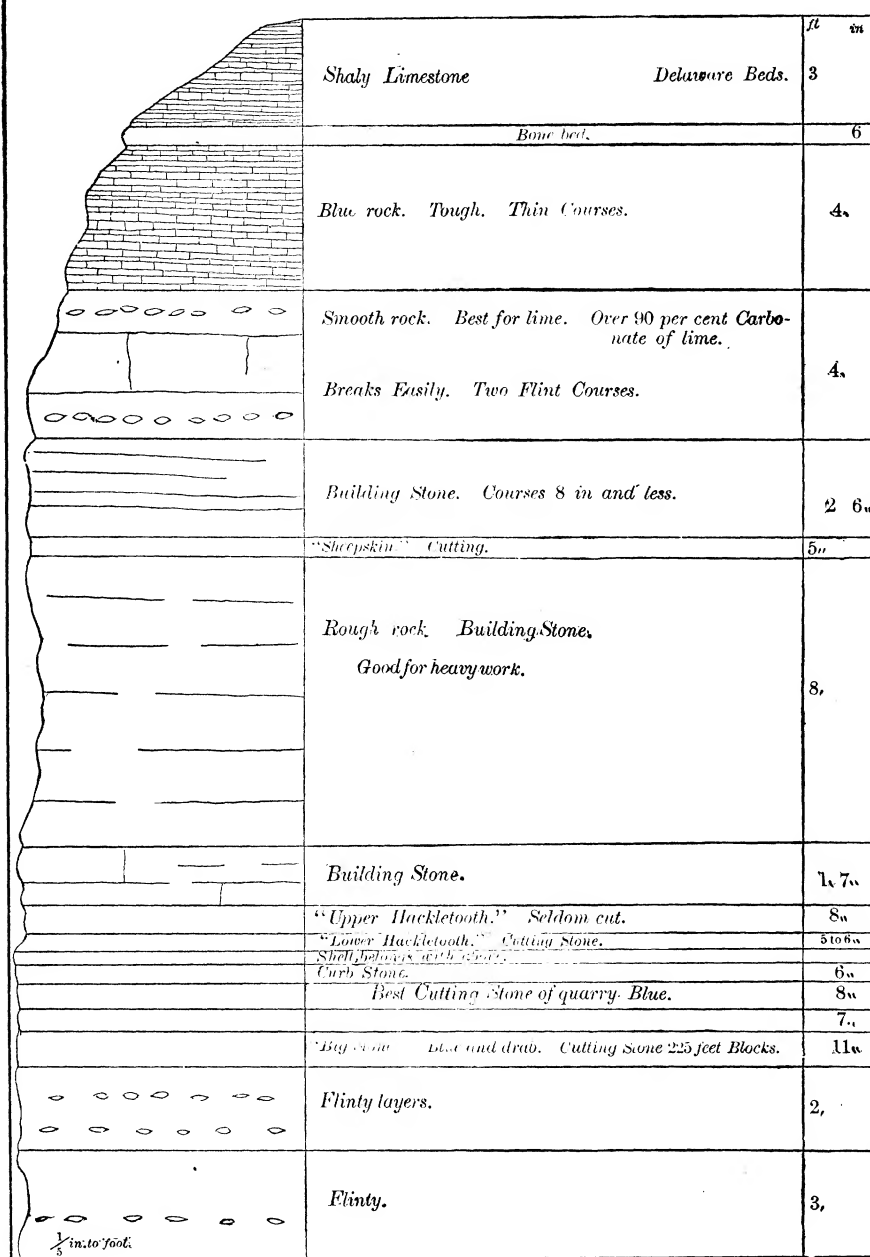 ft in
Shaly Limestone Delaware Beds. 3
Bone bed. 6
Blue rock. Tough. Thin Courses. 4,
Smooth rock. Best for lime. Over 90 per cent Carbo-
nate of lime.
4,
Breaks Easily. Two Flint Courses.
Building Stone. Courses 8 in and less.
2 6,,
"Sheepskin." Cutting. 5,,
Rough rock. Building Stone.
Good for heavy work.
8,
Building Stone. 1, 7,,
"Upper Hackletooth." Seldom cut. 8,,
"Lower Hackletooth." Cutting Stone. 5 to 6,,
Shell, belongs with above.
Curb Stone. 6,,
Best Cutting Stone of quarry. Blue. 8,,
7,,
"Big and drab. Cutting Stone 225 feet Blocks. 11,,
Flinty layers. 2,
Flinty. 3,
1/5 in. to foot.